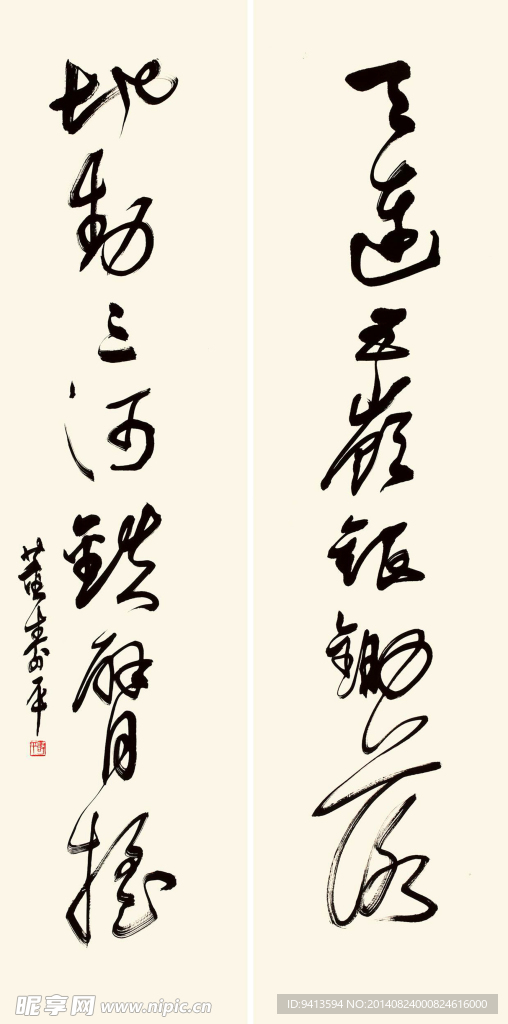 天連五嶺銀鋤落
地動三河鐵臂搖
董壽平
昵享网 www.nipic.cn
ID:9413594 NO:20140824000824616000